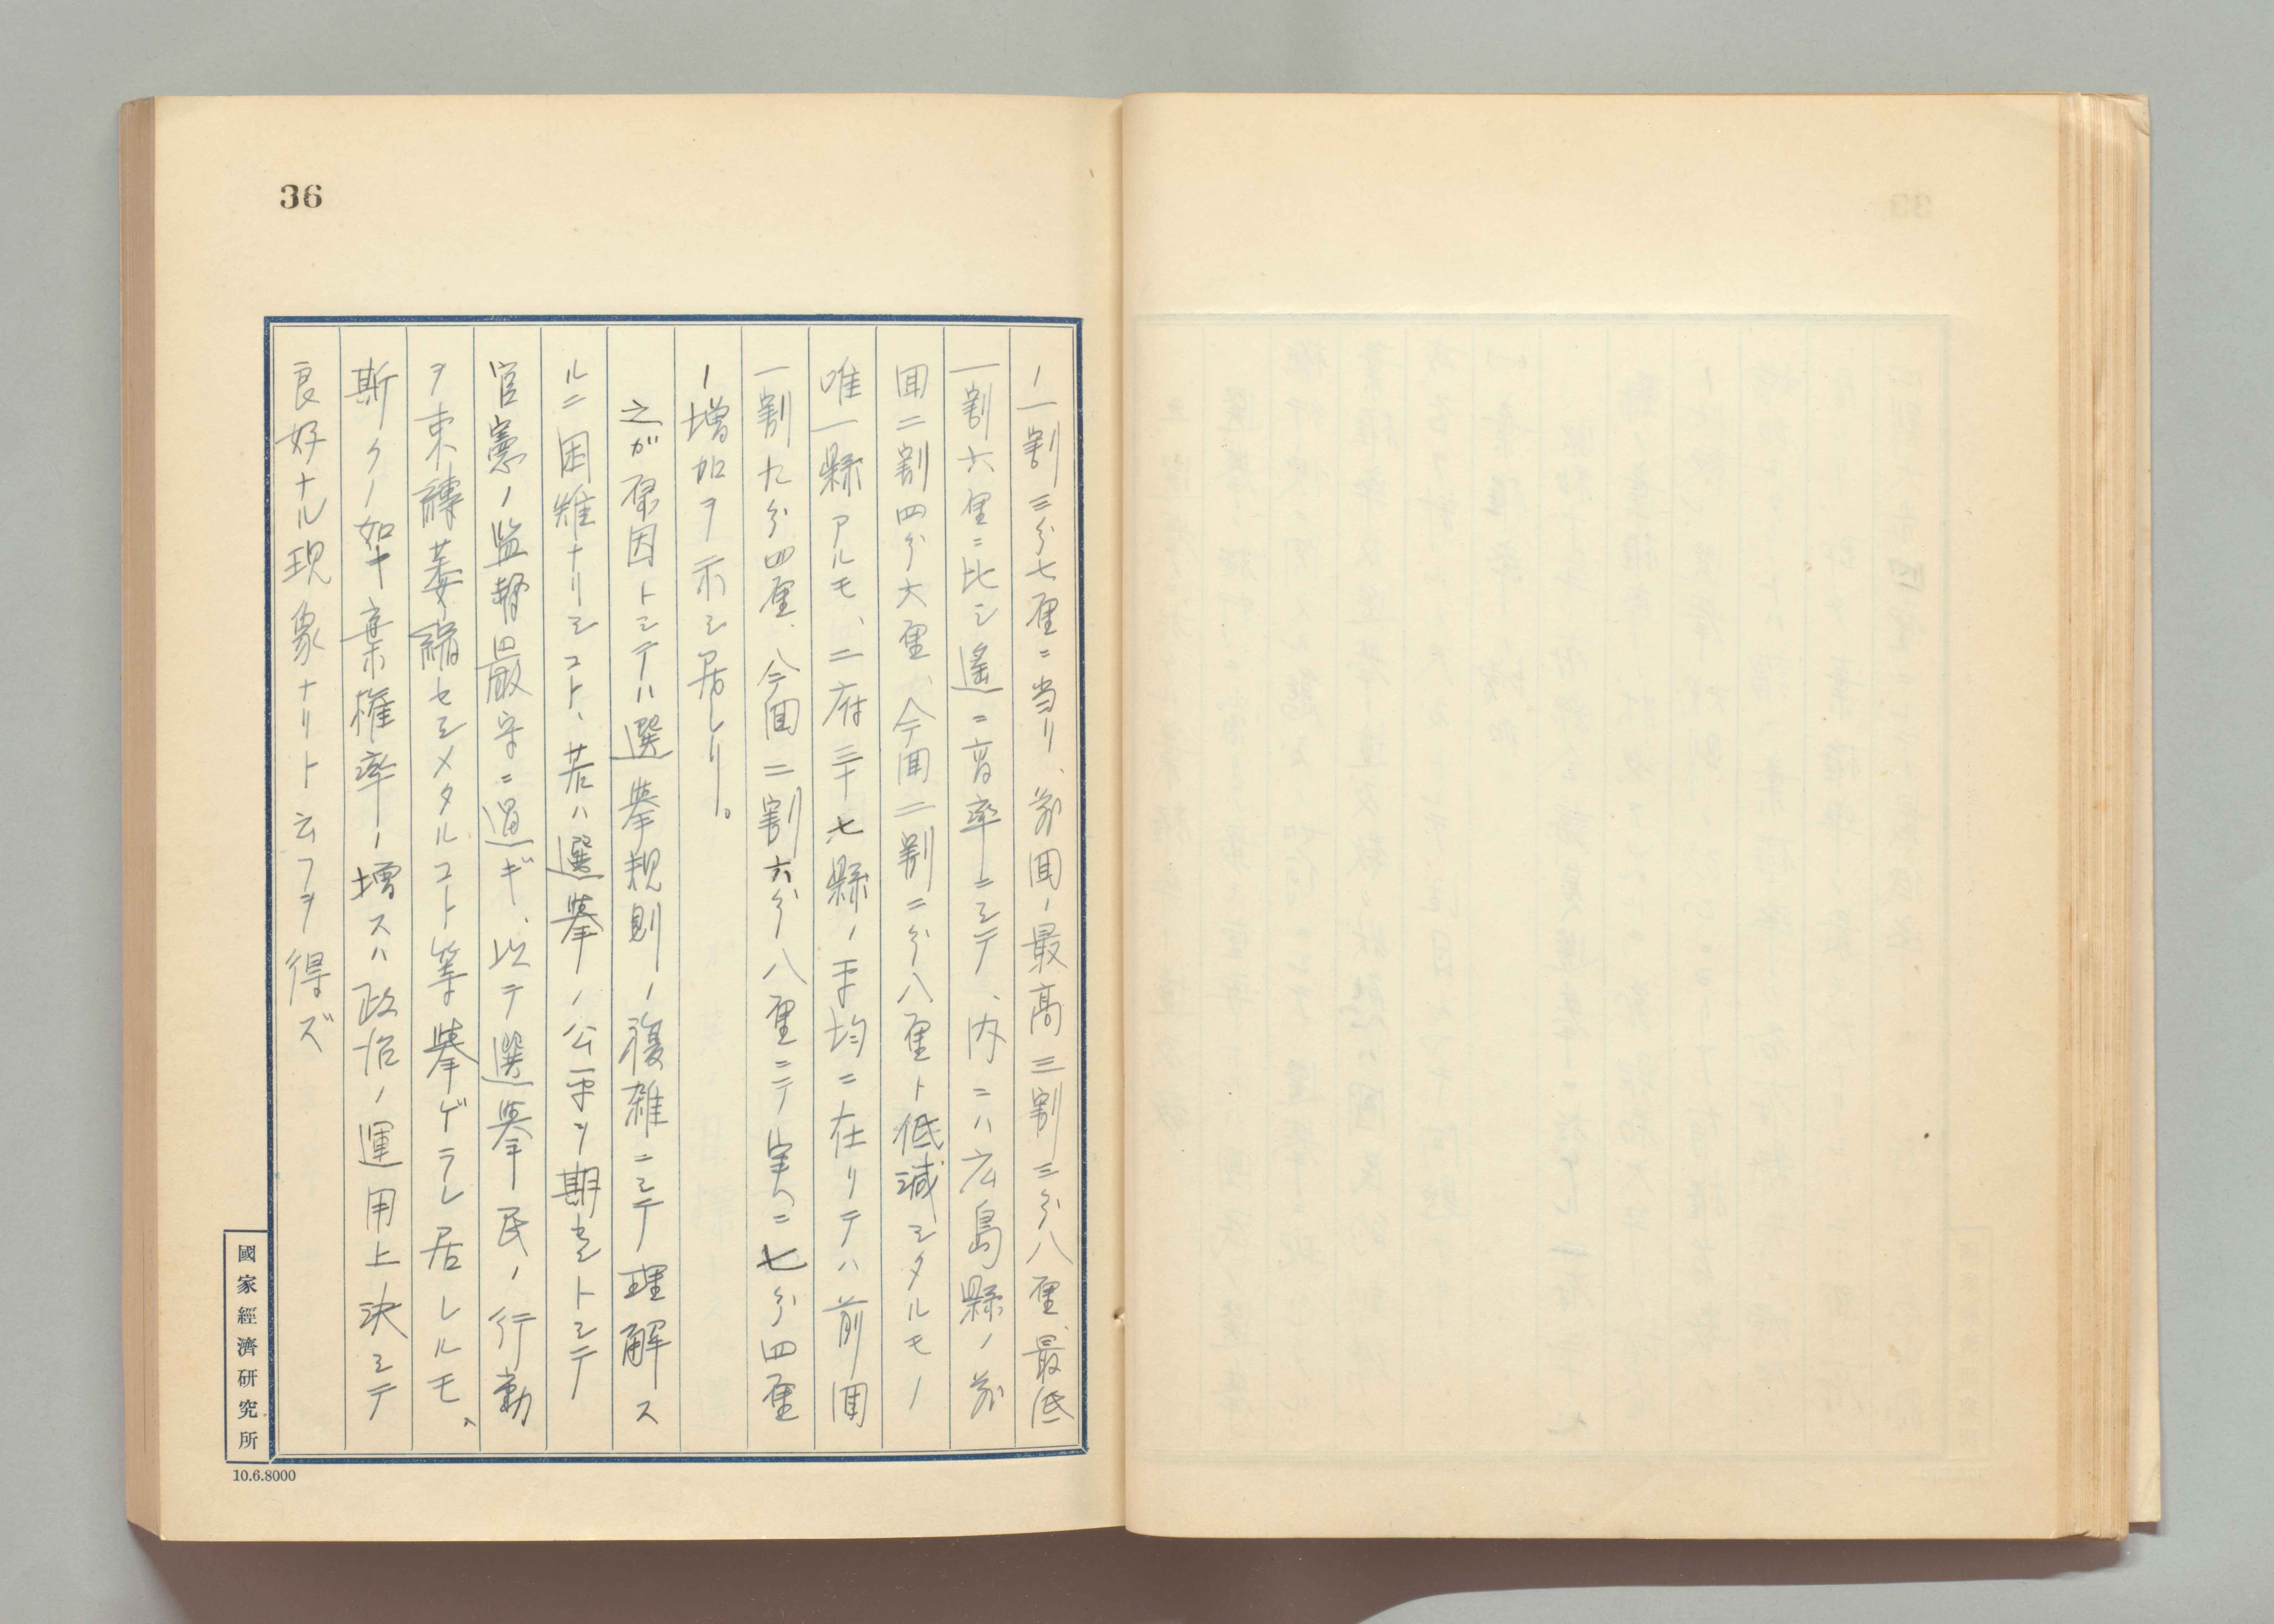 36
ノ一割三分七厘ニ当リ、前回ノ最高三割三分八厘、最低
一割六厘ニ比シ遙ニ高率ニシテ、内ニハ広島縣ノ前
回二割四分六厘、今回二割二分八厘ト低減シタルモノ
唯一縣アルモ、二府三十七縣ノ平均ニ在リテハ前回
一割九分四厘、今回二割六分八厘ニテ実ニ七分四厘
ノ増加ヲ示シ居レリ。
之ガ原因トシテハ選挙規則ノ複雑ニシテ理解ス
ルニ困難ナリシコト、若ハ選挙ノ公平ヲ期セントシテ
官憲ノ監督厳守ニ過ギ、以テ選挙民ノ行動
ヲ束縛萎縮セシメタルコト等挙ゲラレ居レルモ、
斯クノ如キ棄権率ノ増スハ政治ノ運用上決シテ
良好ナル現象ナリト云フヲ得ズ
國家經濟研究所
10.6.8000